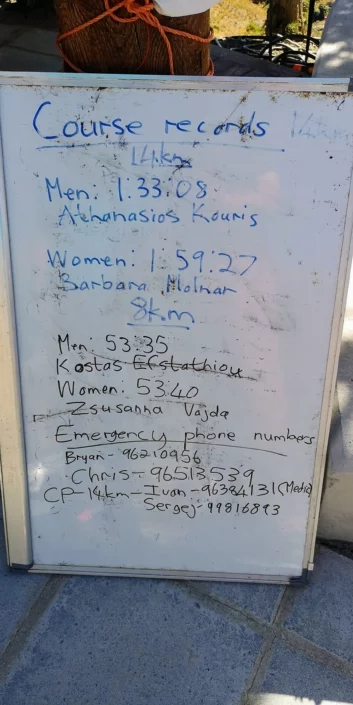 Course records 14km
14km
Men: 1:33:08
Athanasios Kouris
Women: 1 59:27
Barbara Molnar
8km
Men: 53:35
Kostas Efstathiou
Women: 53:40
Zsusanna Vajda
Emergency phone numbers
Bryan - 96210956
Chris - 96513539
CP-14km - Ivan - 96384131 (Media)
Sergej - 99816893